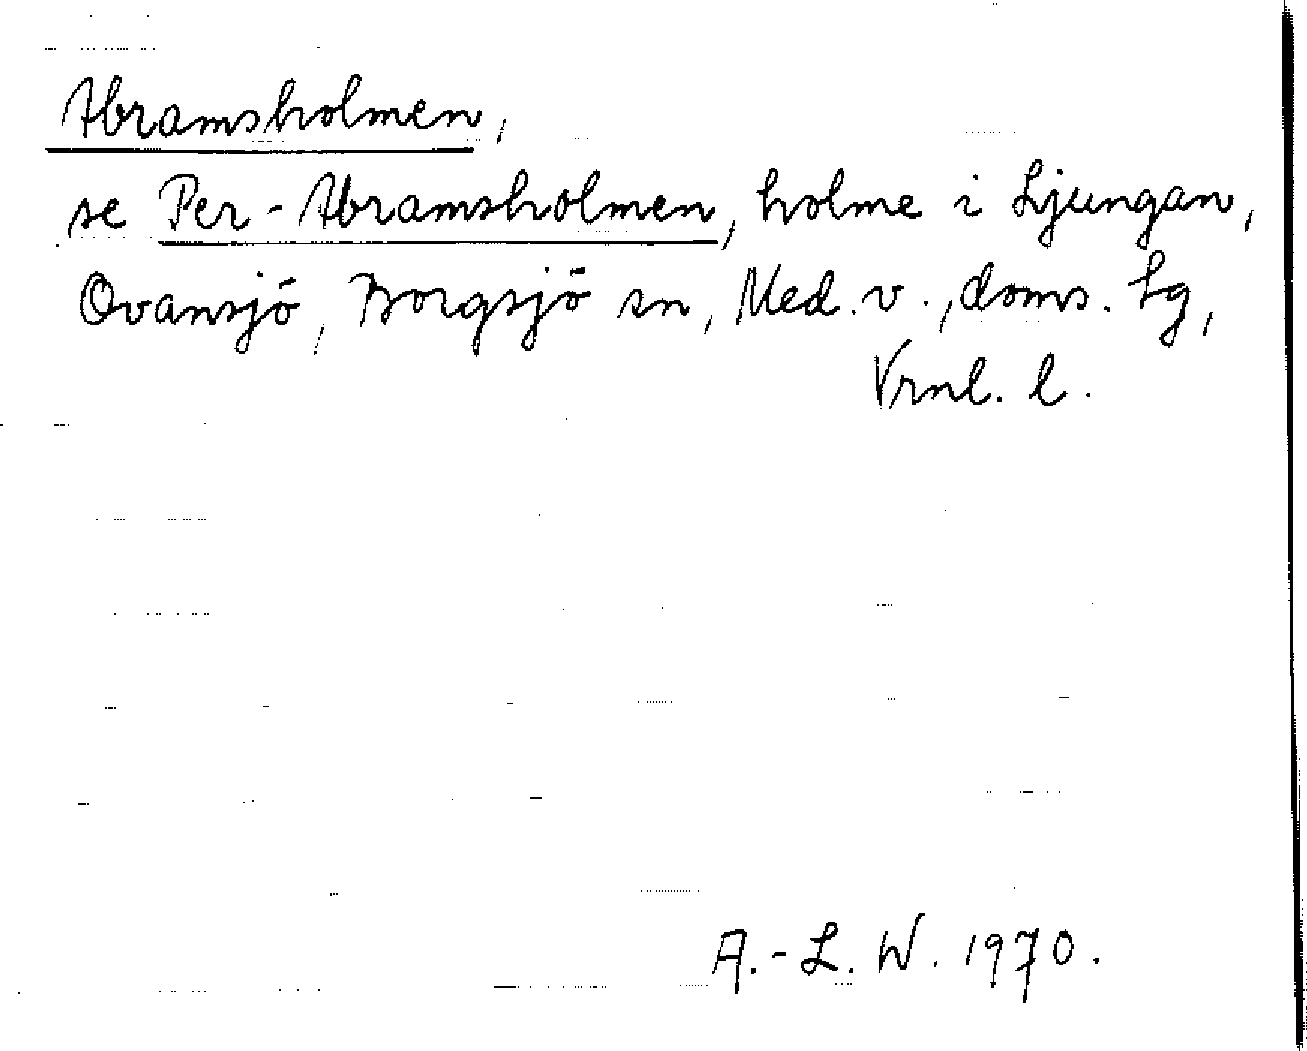 Abramsholmen,
se Per-Abramsholmen, holme i Ljungan,
Ovansjö, Borgsjö sn, Med. v., doms. Lg,
Vrnl. l.
A.-L. W. 1970.